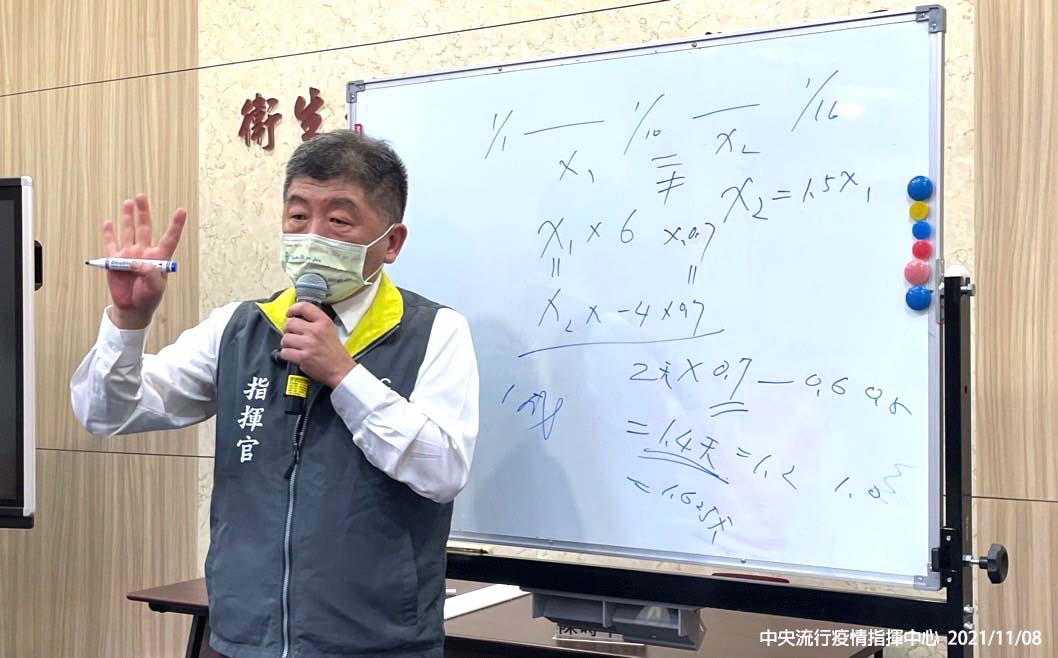 衛生
1/1 —— 1/10 —— 1/16
x₁ = x₂
≠ x₂ = 1.5x₁
x₁ × 6 x0.7
= =
x₂ x -4 x0.7
2天 × 0.7 — 0.6 0.5
= 1.4天 = 1.2 1.0
= 1.625x₁
指揮官
中央流行疫情指揮中心 2021/11/08